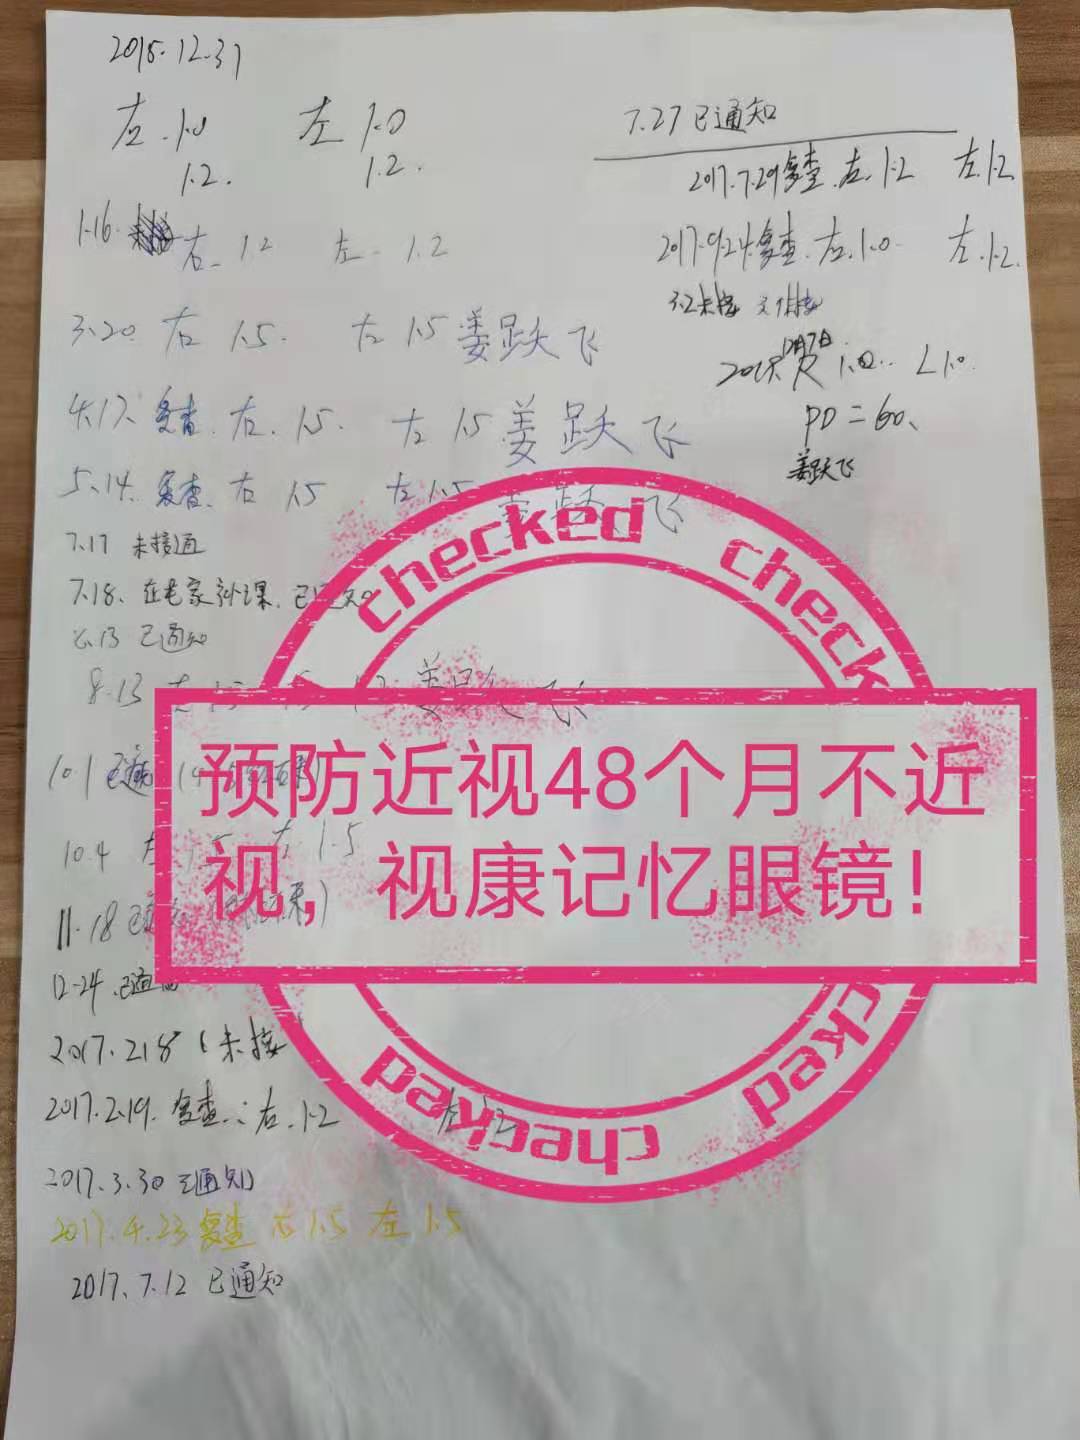 2015.12.31
右.1.0 左 1.0
1.2. 1.2.
1.16. 右. 1.2 左. 1.2
3.20. 右 1.5. 左 1.5 姜跃飞
4.17. 复查. 右. 1.5. 左 1.5 姜跃飞
5.14. 复查. 右 1.5 左 1.5 飞
7.17 未接通
7.18. 在老家补课.
8.13 已通知
8.13
10.1
10.4 1.5 右 1.5
11.18
12.24.
2017.2.18 (未接
2017.2.19. 复查.: 右. 1.2 左 1.2
2017.3.30 已通知
2017.4.23 复查 右 1.5 左 1.5
2017.7.12 已通知
7.27 已通知
2017.7.29复查. 右. 1.2 左.1.2
2017.9.24.复查. 右.1.0. 左.1.2.
3.2未接
12月7日
R 1.0.. L 1.0.
PD=60.
姜跃飞
checked checked
预防近视48个月不近
视，视康记忆眼镜！
checked checked checked